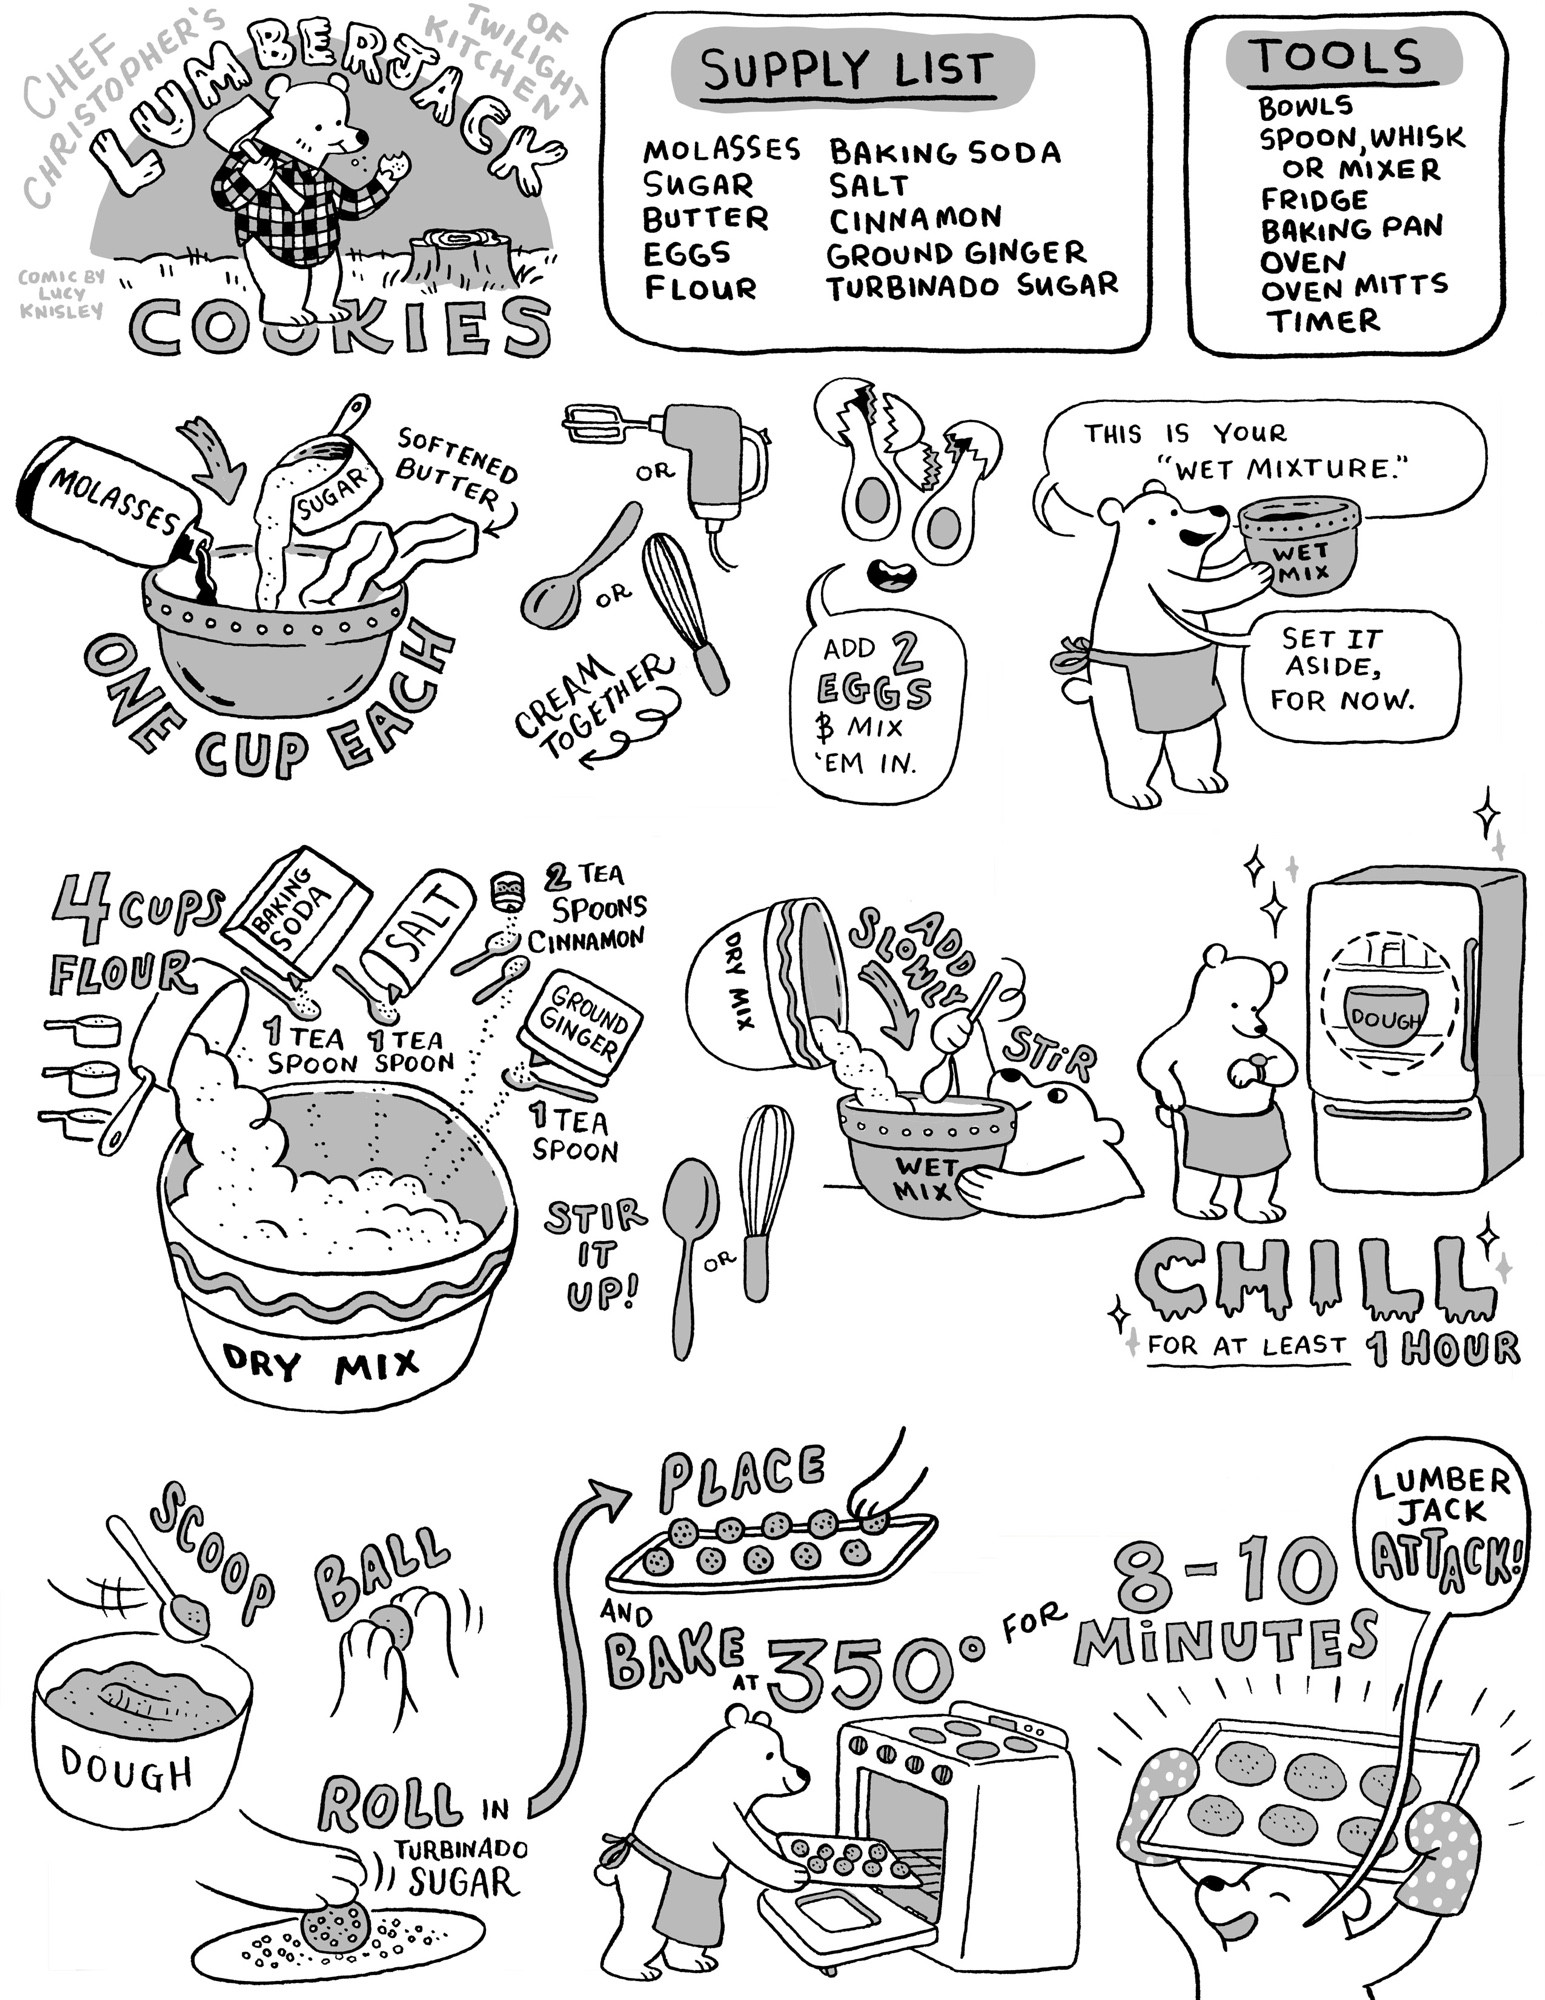 CHEF
CHRISTOPHER'S
LUMBERJACK
OF
TWILIGHT
KITCHEN
COMIC BY
LUCY
KNISLEY
COOKIES
SUPPLY LIST
MOLASSES
SUGAR
BUTTER
EGGS
FLOUR
BAKING SODA
SALT
CINNAMON
GROUND GINGER
TURBINADO SUGAR
TOOLS
BOWLS
SPOON, WHISK
OR MIXER
FRIDGE
BAKING PAN
OVEN
OVEN MITTS
TIMER
MOLASSES
SUGAR
SOFTENED
BUTTER
ONE CUP EACH
OR
OR
CREAM
TOGETHER
ADD 2
EGGS
& MIX
'EM IN.
THIS IS YOUR
"WET MIXTURE."
WET
MIX
SET IT
ASIDE,
FOR NOW.
4 CUPS
FLOUR
BAKING
SODA
1 TEA
SPOON
SALT
1 TEA
SPOON
2 TEA
SPOONS
CINNAMON
GROUND
GINGER
1 TEA
SPOON
DRY MIX
STIR
IT
UP!
OR
DRY MIX
ADD
SLOWLY
STIR
WET
MIX
DOUGH
CHILL
FOR AT LEAST 1 HOUR
SCOOP
DOUGH
BALL
ROLL IN
TURBINADO
SUGAR
PLACE
AND
BAKE AT 350°
FOR
8-10
MINUTES
LUMBER
JACK
ATTACK!